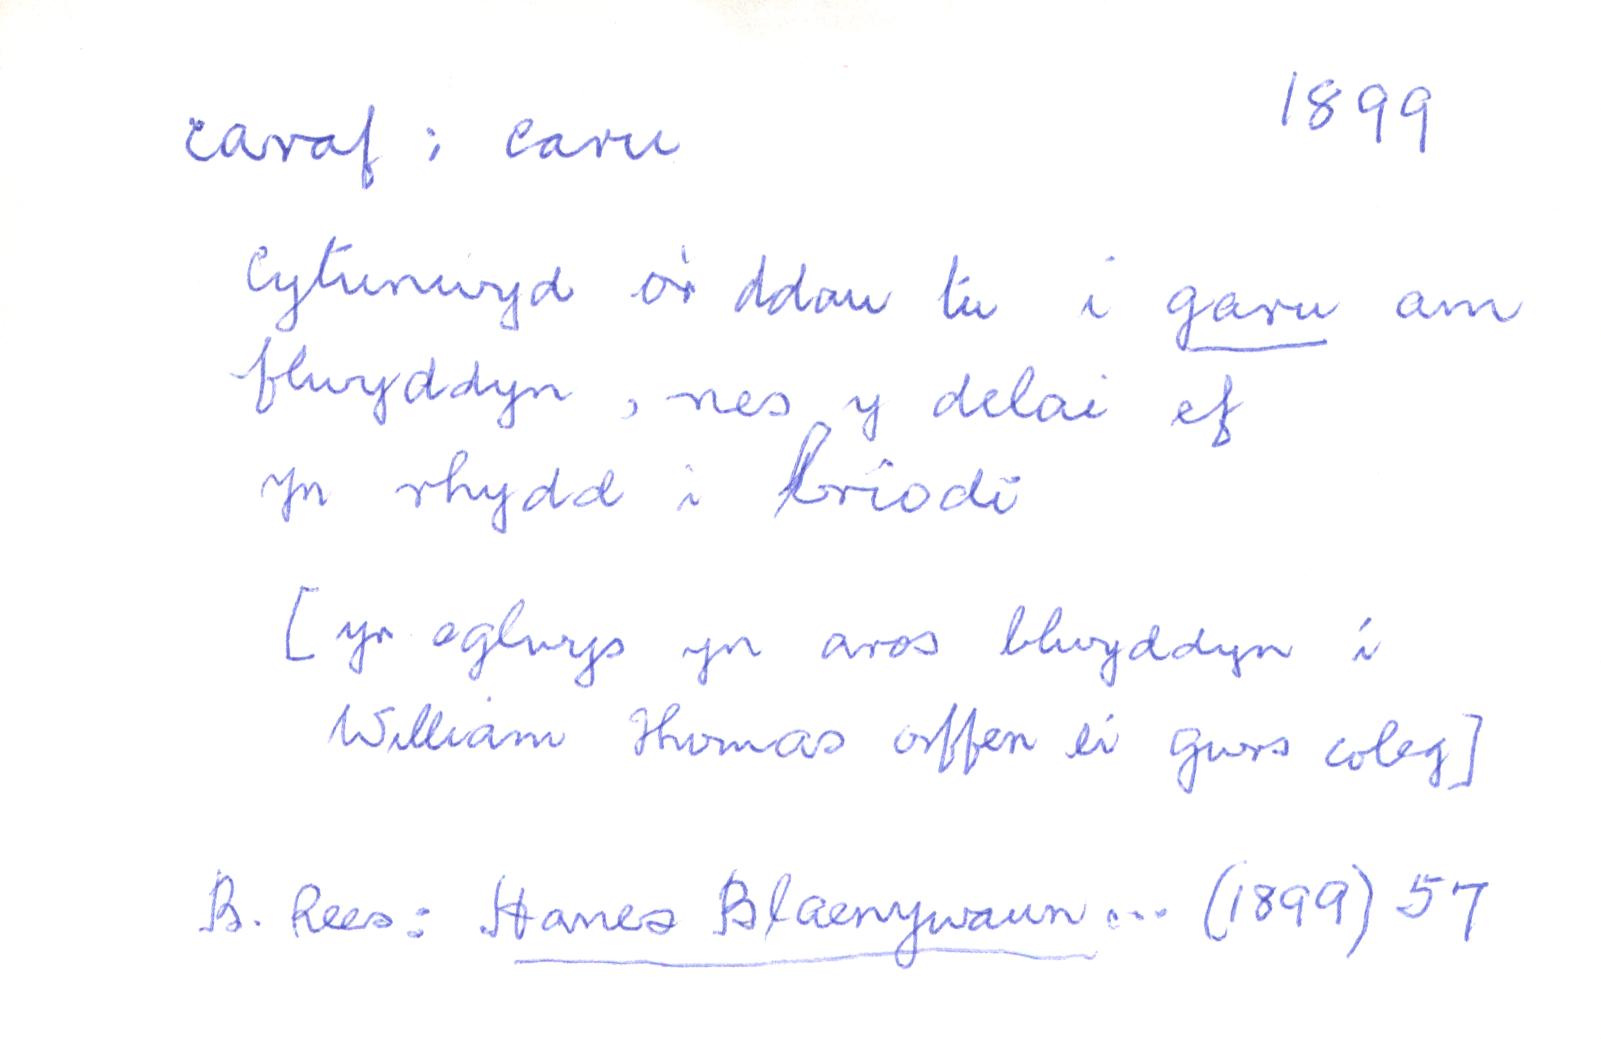 caraf : caru 1899
Cytunwyd o'r ddau tu i garu am
flwyddyn, nes y delai ef
yn rhydd i briodi
[yr eglwys yn aros blwyddyn i
William Thomas orffen ei gwrs coleg]
B. Rees: Hanes Blaenywaun ... (1899) 57